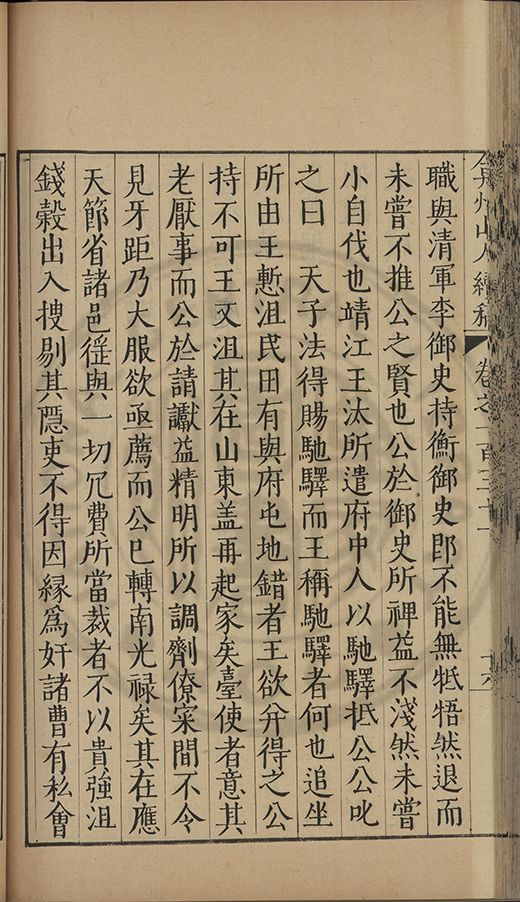 弇州山人續稿 卷之一百三十一 十六
職與清軍李御史持衡御史郎不能無牴牾然退而
未嘗不推公之賢也公於御史所裨益不淺然未嘗
小自伐也靖江王汰所遣府中人以馳驛抵公公叱
之曰 天子法得賜馳驛而王稱馳驛者何也追坐
所由王慙沮民田有與府屯地錯者王欲弁得之公
持不可王又沮其在山東盖再起家矣臺使者意其
老厭事而公於請讞益精明所以調劑僚寀間不令
見牙距乃大服欲亟薦而公巳轉南光禄矣其在應
天節省諸邑徭與一切冗費所當裁者不以貴強沮
錢穀出入搜剔其隱吏不得因緣爲奸諸曹有私會